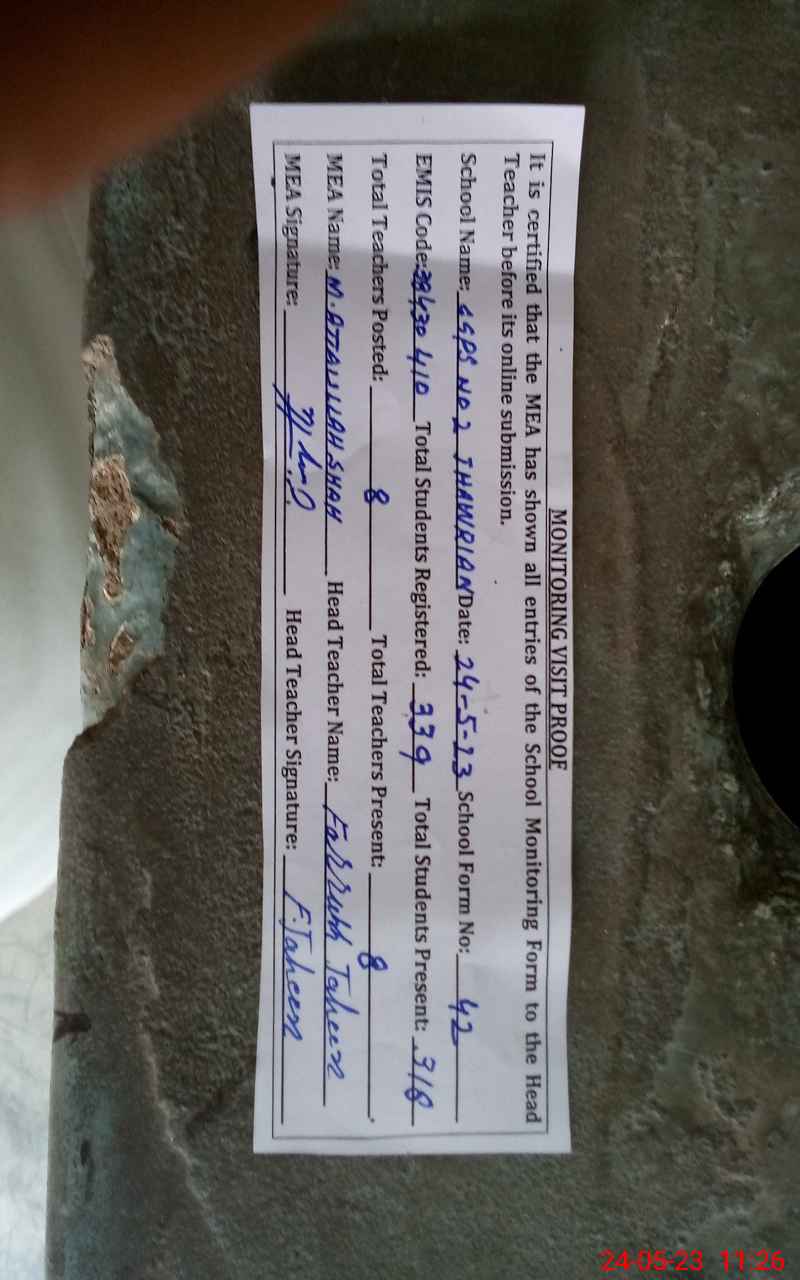 MONITORING VISIT PROOF
It is certified that the MEA has shown all entries of the School Monitoring Form to the Head
Teacher before its online submission.
School Name: GGPS NO 2 THAWRIAN Date: 24-5-23 School Form No: 42
EMIS Code: 38430410 Total Students Registered: 339 Total Students Present: 318
Total Teachers Posted: 8 Total Teachers Present: 8.
MEA Name: M. ATTAULLAH SHAH Head Teacher Name: Farrukh Taheen
MEA Signature: Head Teacher Signature: F.Taheen
24-05-23 11:26